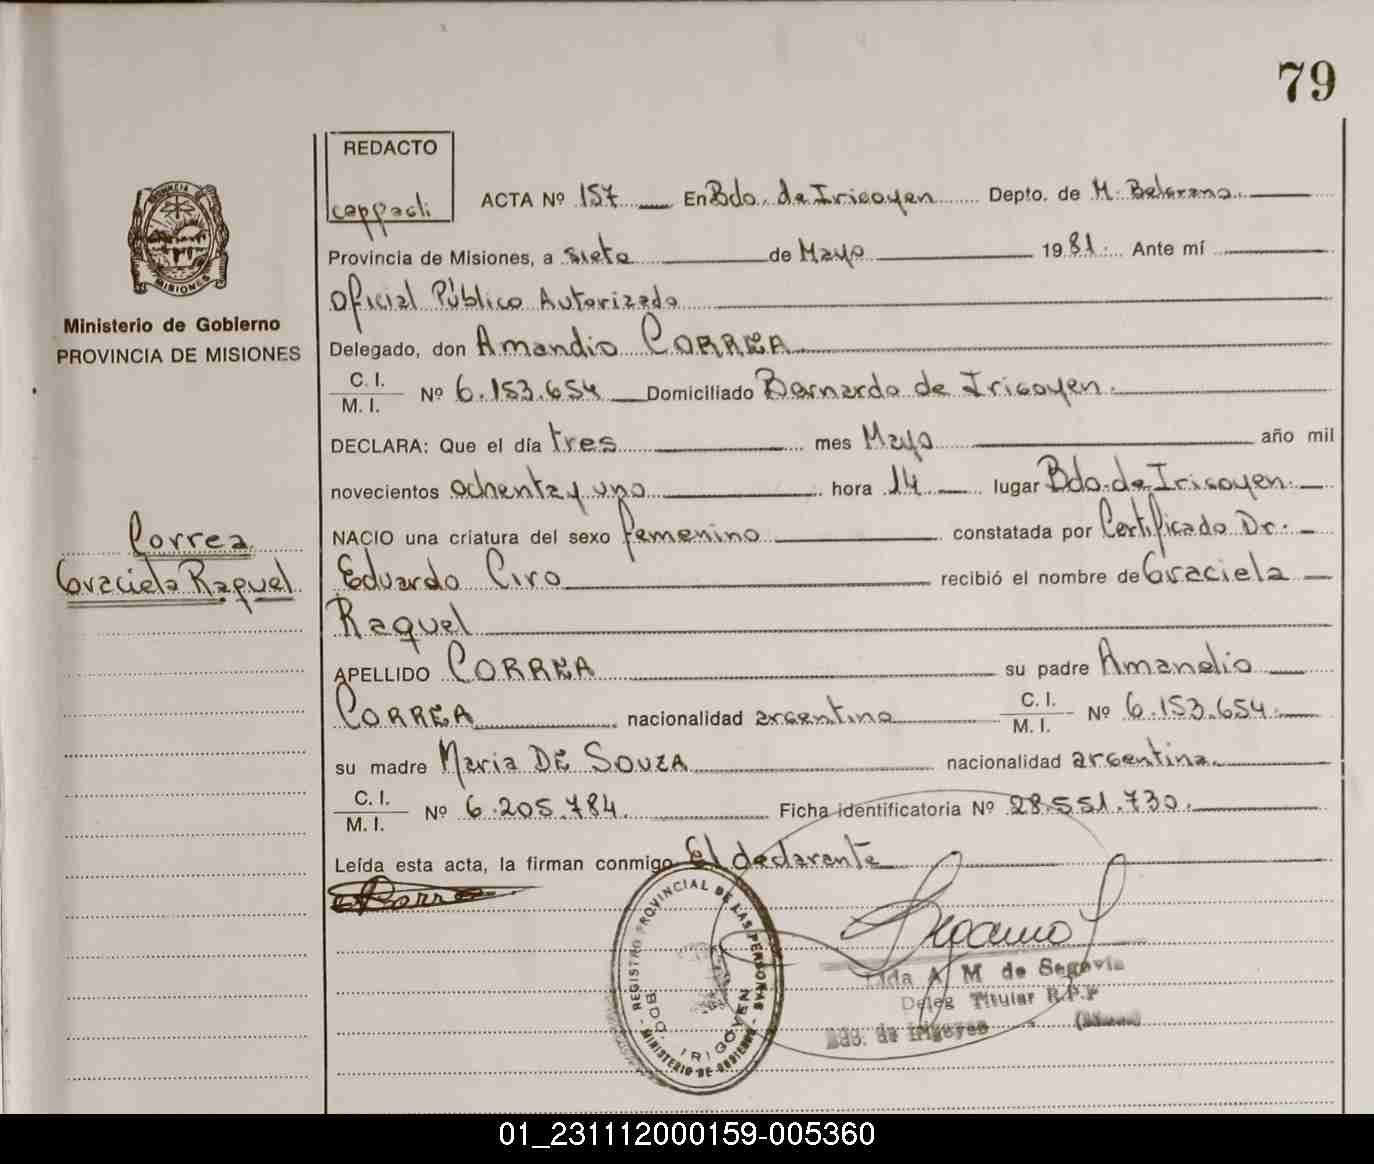 79
REDACTO
cappacli
ACTA Nº 157 En Bdo. de Irigoyen Depto. de M. Belgrano.
Provincia de Misiones, a siete de Mayo 1981. Ante mí
Oficial Público Autorizado
Delegado, don Amandio CORREA
C. I.
M. I.
Nº 6.153.654 Domiciliado Bernardo de Irigoyen.
DECLARA: Que el día tres mes Mayo año mil
novecientos ochenta y uno hora 14 lugar Bdo. de Irigoyen.
NACIO una criatura del sexo femenino constatada por Certificado Dr.
Eduardo Ciro recibió el nombre de Graciela
Raquel
APELLIDO CORREA su padre Amandio
CORREA nacionalidad argentina C. I.
M. I. Nº 6.153.654.
su madre Maria DE SOUZA nacionalidad argentina.
C. I.
M. I.
Nº 6.205.784. Ficha identificatoria Nº 28.551.730.
Leída esta acta, la firman conmigo El declarante
PROVINCIA DE
MISIONES
Ministerio de Gobierno
PROVINCIA DE MISIONES
Correa
Graciela Raquel
REGISTRO PROVINCIAL DE LAS PERSONAS
DOB. IRIGOYEN
MINISTERIO DE GOBIERNO
A M de Segovia
Deleg Titular R.P.P
Bdo. de Irigoyen
01_231112000159-005360